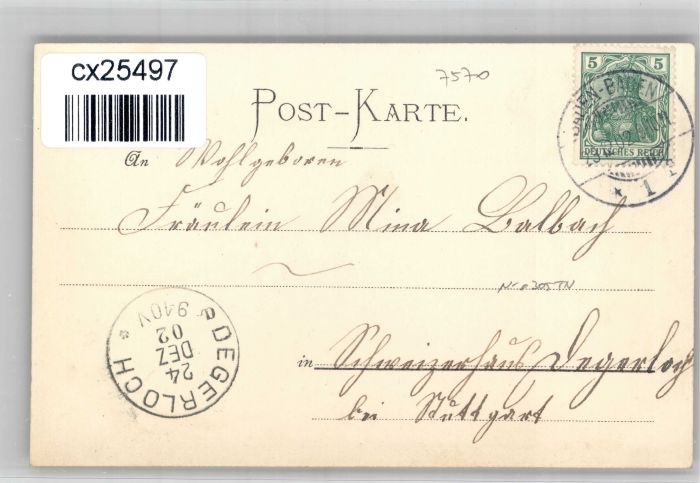 cx25497
7570
POST-KARTE.
5 5
DEUTSCHES REICH
BADEN-BADEN
* 1 P
An Wohlgeboren
Fräulein Mina Balbach
in Schweizerhaus Degerloch
bei Stuttgart
DEGERLOCH *
24
DEZ
02
940V